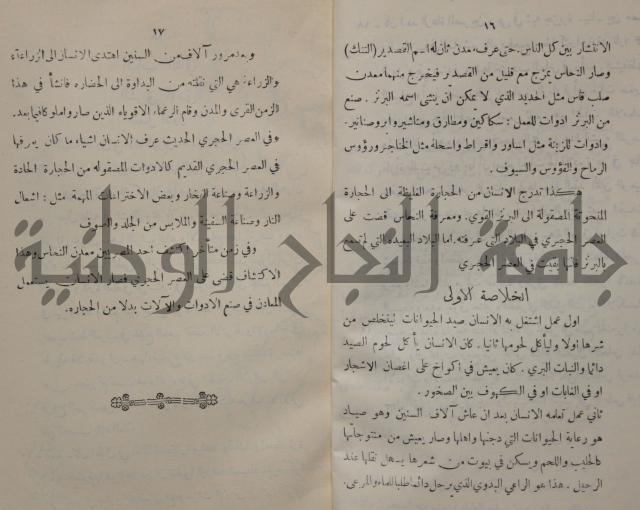 ١٦
الانتشار بين كل الناس. حتى عرف معدن ثان له اسم القصدير (التنك)
وصار النحاس يمزج مع قليل من القصدير فيخرج منهما معدن
صلب قاس مثل الحديد الذي لا يمكن ان ينثني اسمه البرنز. صنع
من البرنز ادوات للعمل: سكاكين ومطارق ومناشير وابر وصنانير.
وادوات للزينة مثل اساور واقراط واسلحة مثل الخناجر ورؤوس
الرماح والفؤوس والسيوف.
هكذا تدرج الانسان من الحجارة الغليظة الى الحجارة
المنحوتة المصقولة الى البرنز القوي. ومعرفة النحاس قضت على
العصر الحجري في البلاد التي عرفته. اما البلاد البعيدة التي لم تسمع
بالبرنز فانها بقيت في العصر الحجري
الخلاصة الاولى
اول عمل اشتغل به الانسان صيد الحيوانات ليتخلص من
شرها اولا وليأكل لحومها ثانيا. كان الانسان يأكل لحوم الصيد
دائما والنبات البري. كان يعيش في اكواخ على اغصان الاشجار
او في الغابات او في الكهوف بين الصخور.
ثاني عمل تعلمه الانسان بعد ان عاش آلاف السنين وهو صياد
هو رعاية الحيوانات التي دجنها واهلها وصار يعيش من منتوجاتها
كالحليب واللحم ويسكن في بيوت من شعرها يسهل نقلها عند
الرحيل. هذا هو الراعي البدوي الذي يرحل دائما طلبا للماء والمرعى.
١٧
وبعد مرور آلاف من السنين اهتدى الانسان الى الزراعة،
والزراعة هي التي نقلته من البداوة الى الحضارة فانشأ في هذا
الزمن القرى والمدن وقام الزعماء الاقوياء الذين صاروا ملوكا فيما بعد.
وفي العصر الحجري الحديث عرف الانسان اشياء ما كان يعرفها
في العصر الحجري القديم كالادوات المصقولة من الحجارة الحادة
والزراعة وصناعة الفخار وبعض الاختراعات المهمة مثل: اشعال
النار وصناعة السفينة والملابس من الجلد والصوف
وفي زمن متأخر اكتشف احد المصريين معدن النحاس وهذا
الاكتشاف قضى على العصر الحجري فصار الانسان يستعمل
المعادن في صنع الادوات والآلات بدلا من الحجارة.
جامعة النجاح الوطنية